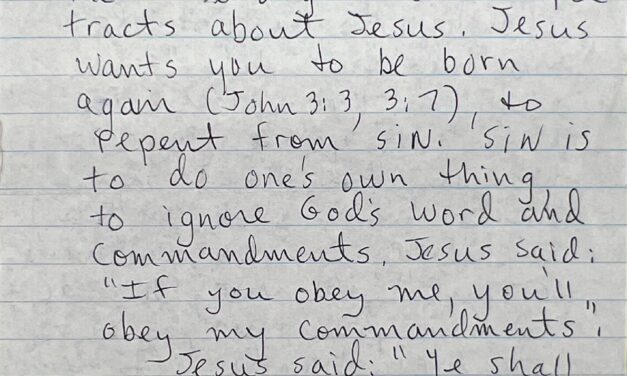 tracts about Jesus. Jesus
wants you to be born
again (John 3:3, 3:7), to
repent from sin. Sin is
to do one's own thing,
to ignore God's word and
commandments. Jesus said:
"If you obey me, you'll
obey my commandments".
Jesus said: "Ye shall